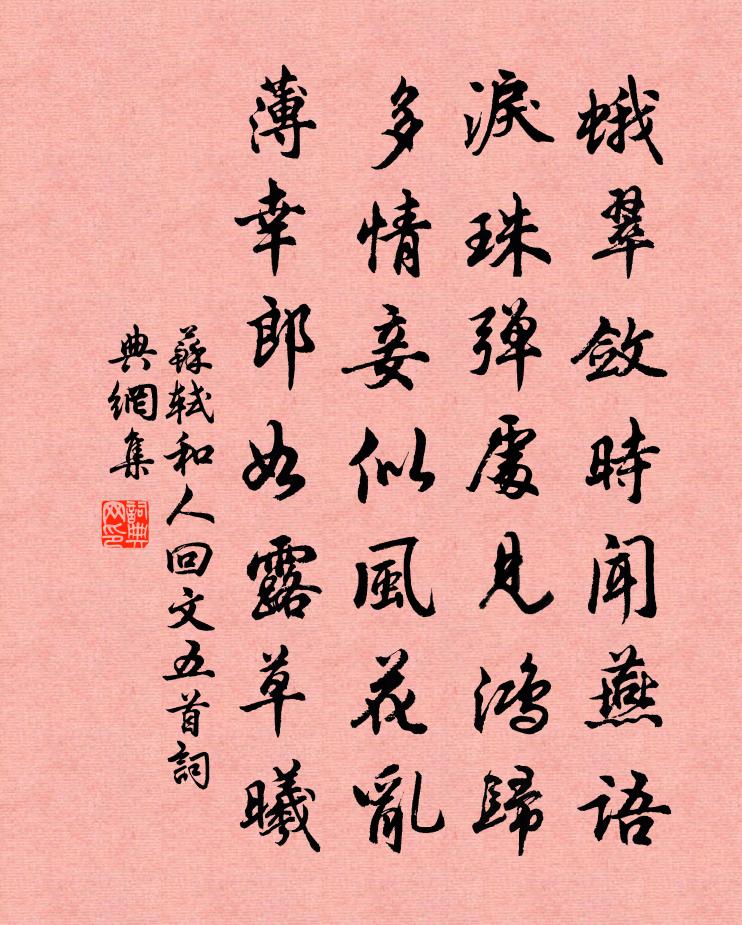 蛾翠斂時聞燕語
淚珠弾處見鴻歸
多情妾似風花亂
薄幸郎如露草曦
蘇軾和人回文五首詞
典網集
詞典網印